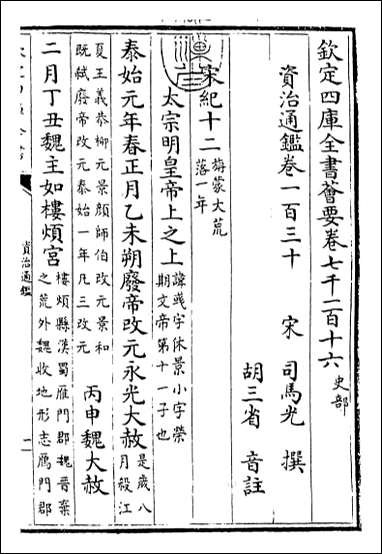 欽定四庫全書薈要卷七千一百十六 史部
資治通鑑卷一百三十
宋 司馬光 撰
胡三省 音註
宋紀十二 旃蒙大荒落一年
太宗明皇帝上之上 諱彧字休景小字榮期文帝第十一子也
泰始元年春正月乙未朔廢帝改元永光大赦 是歲八月殺江
夏王義恭柳元景顏師伯改元景和既弑廢帝改元泰始一年凡三改元 丙申魏大赦
二月丁丑魏主如樓煩宮 樓煩縣漢蜀雁門郡魏晉棄之荒外魏收地形志雁門郡
資治通鑑
一